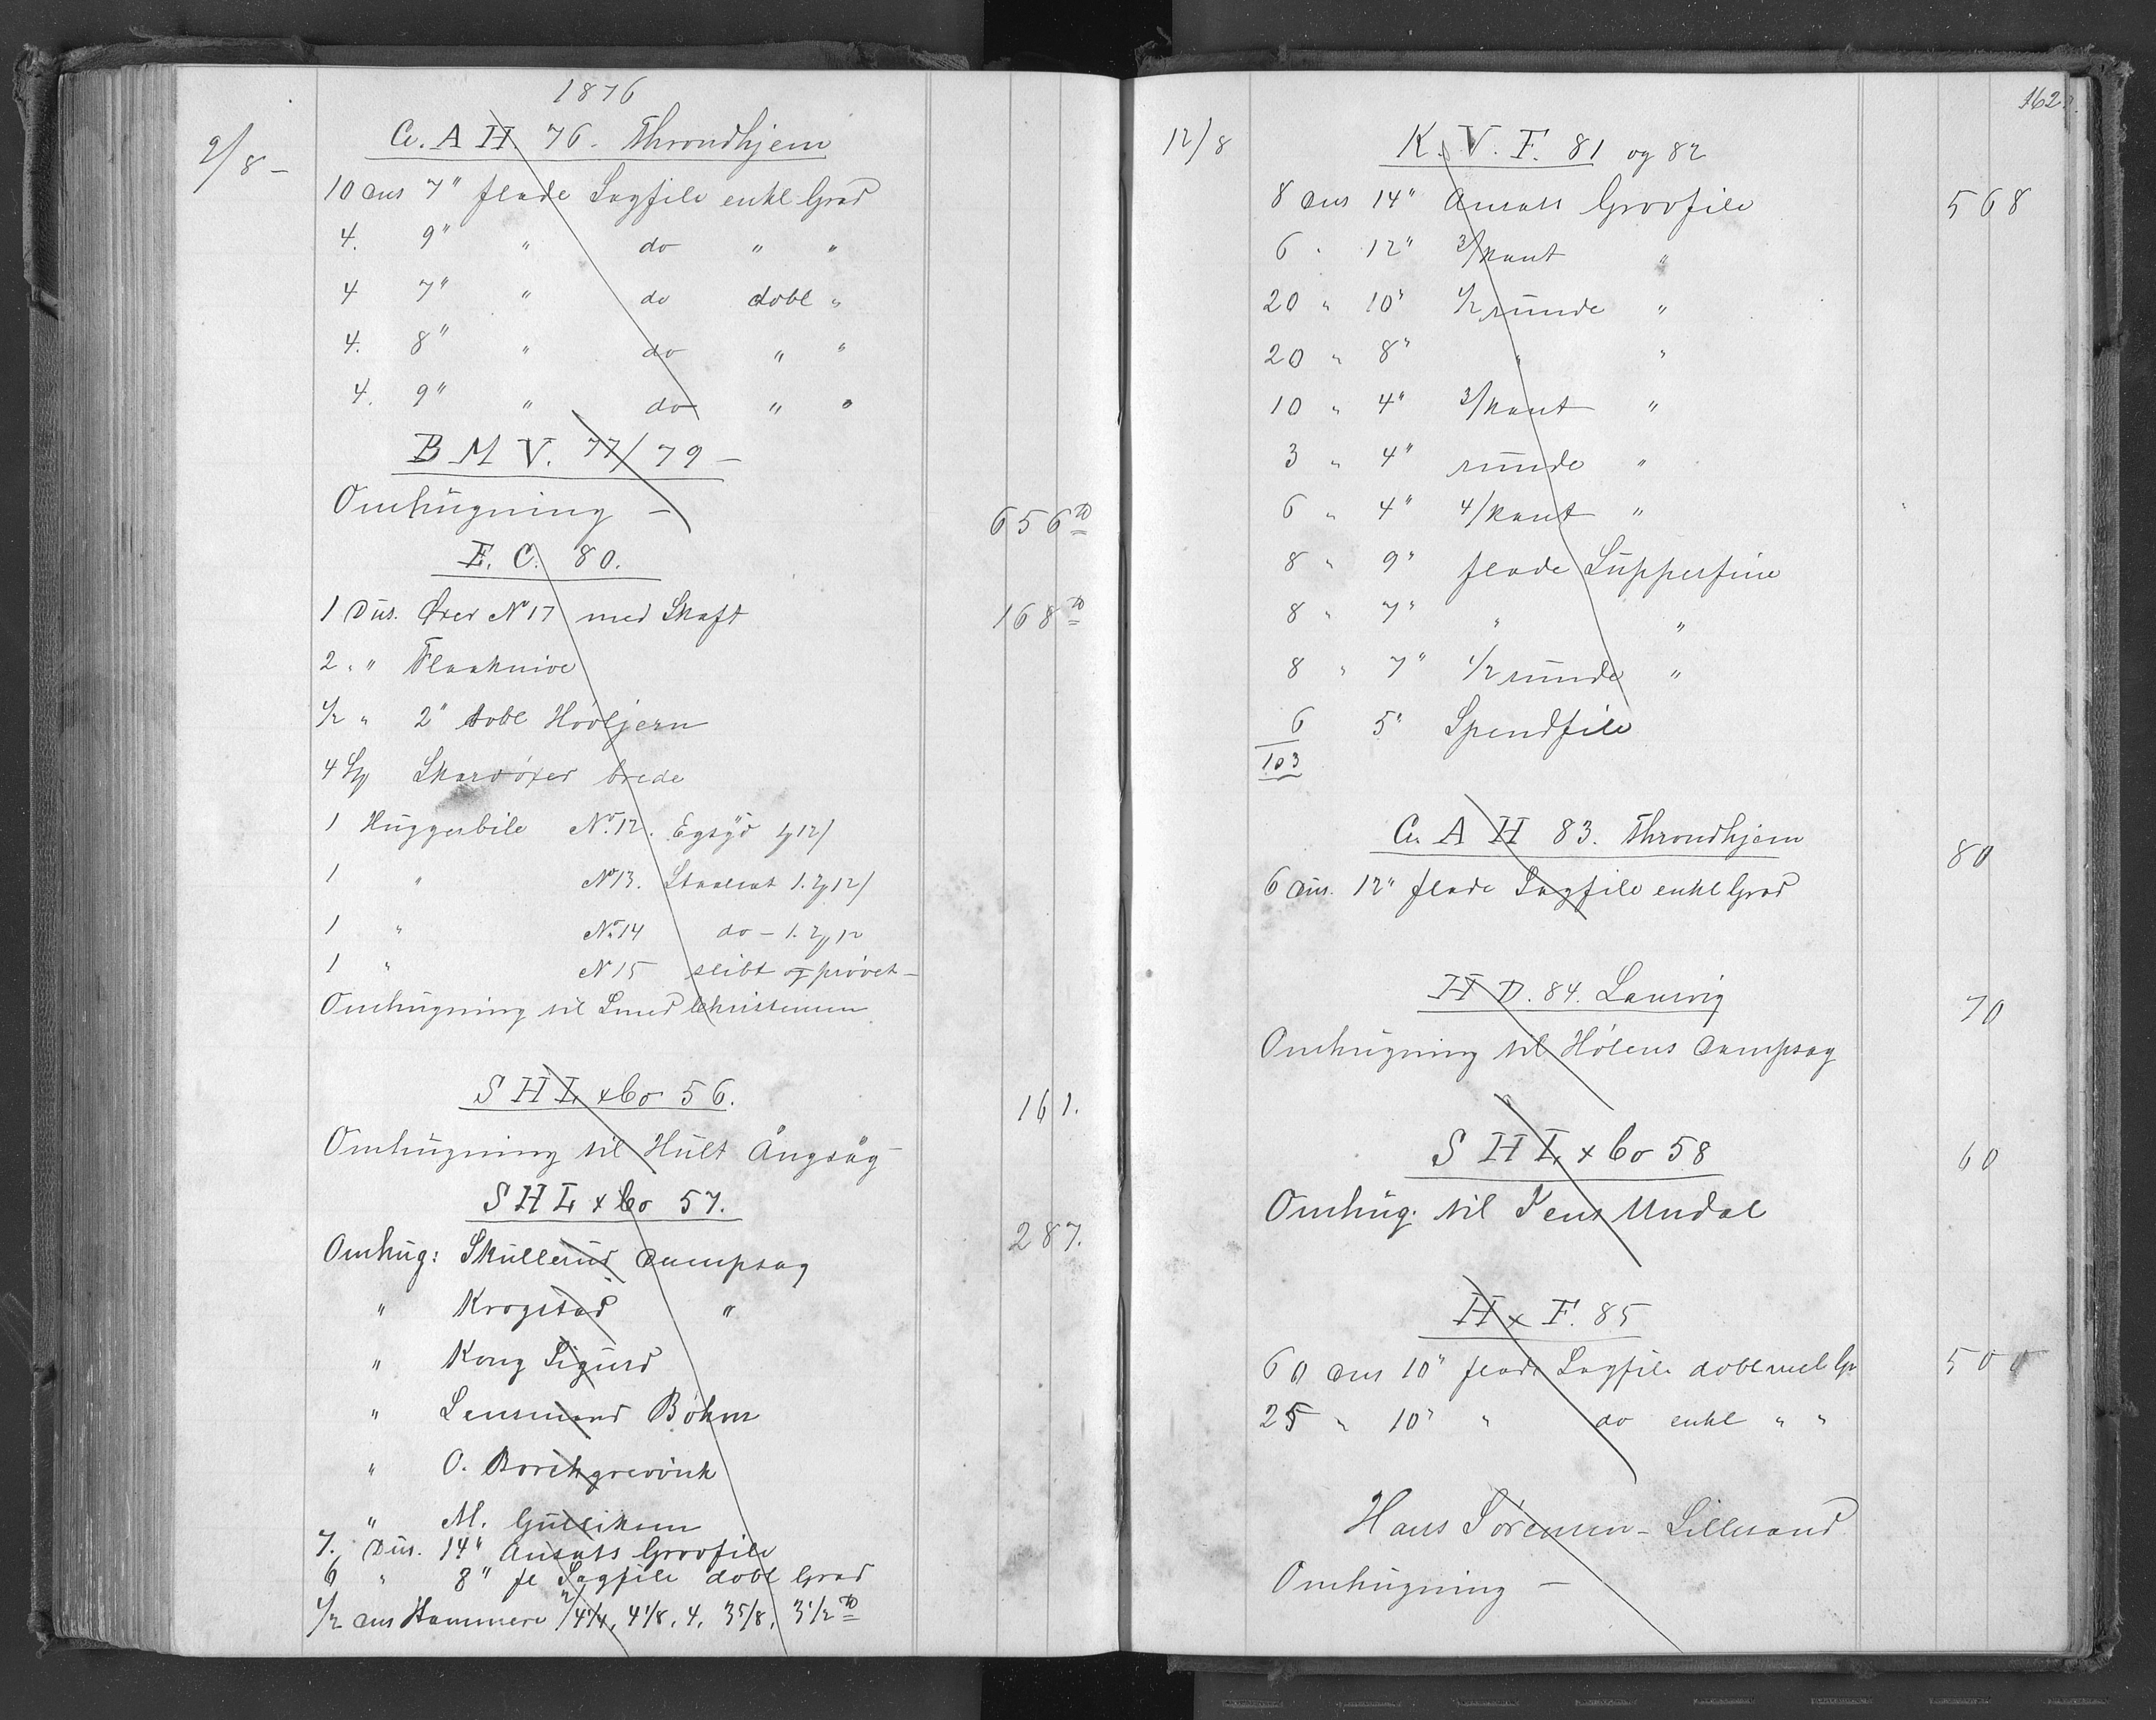 1876
9/8 –
C. A H 76. Throndhjem
10 Dus 7" flade Sagfile enkl Grad
4. 9" " do " "
4 7" " do dobl "
4. 8" " do " "
4. 9" " do " "
B M V. 77/79 –
Omhugning – 656 ℔
E. C. 80.
1 Dus. Øxer No 17 med Skaft 168 ℔
2 " " Flaaknive
1/2 " 2" dobl Høvljern
4 Skarvøxer brede
1 Huggerbile No. 12.
1 " No 13.
1 " No. 14 do –
1 " N 15 slibt og prøvet –
Omhugning til Smed Christensen
S H L & Co 56. 161.
Omhugning til Hult Ångsåg
S H L & Co 57.
Omhug: Skullerud Dampsag 287.
" Krogstad "
" Kong Sigurd
" Lensmand Bøhm
" O. Borchgrevink
" M. Gulliksen
7. Dus. 14" Ansats Grovfile
6 " 8" fl Sagfile dobl Grad
1/2 Dus Hammere 4 1/4, 4 1/8, 4, 3 5/8, 3 1/2 ℔
162
12/8
K. V. F. 81 og 82
8 Dus 14" Ansats Grovfile 568
6 " 12" 3/kant "
20 " 10" 1/2 runde "
20 " 8" " "
10 " 4" 3/kant "
3 " 4" runde "
6 " 4" 4/kant "
8 " 9" flade Supperfine
8 " 7" " "
8 " 7" 1/2 runde "
6 5" Spendfile
103
C. A H 83. Throndhjem
6 Dus. 12" flade Sagfile enkl Grad 80
H D. 84. Laurvig 70
Omhugning til Hølens Dampsag
S H L & Co 58 60
Omhug. til Jens Undal
H & F. 85
60 Dus 10" flade Sagfile dobl mel Gr 500
25 " 10" " do enkl " "
Hans Sørensen – Lillesand
Omhugning –